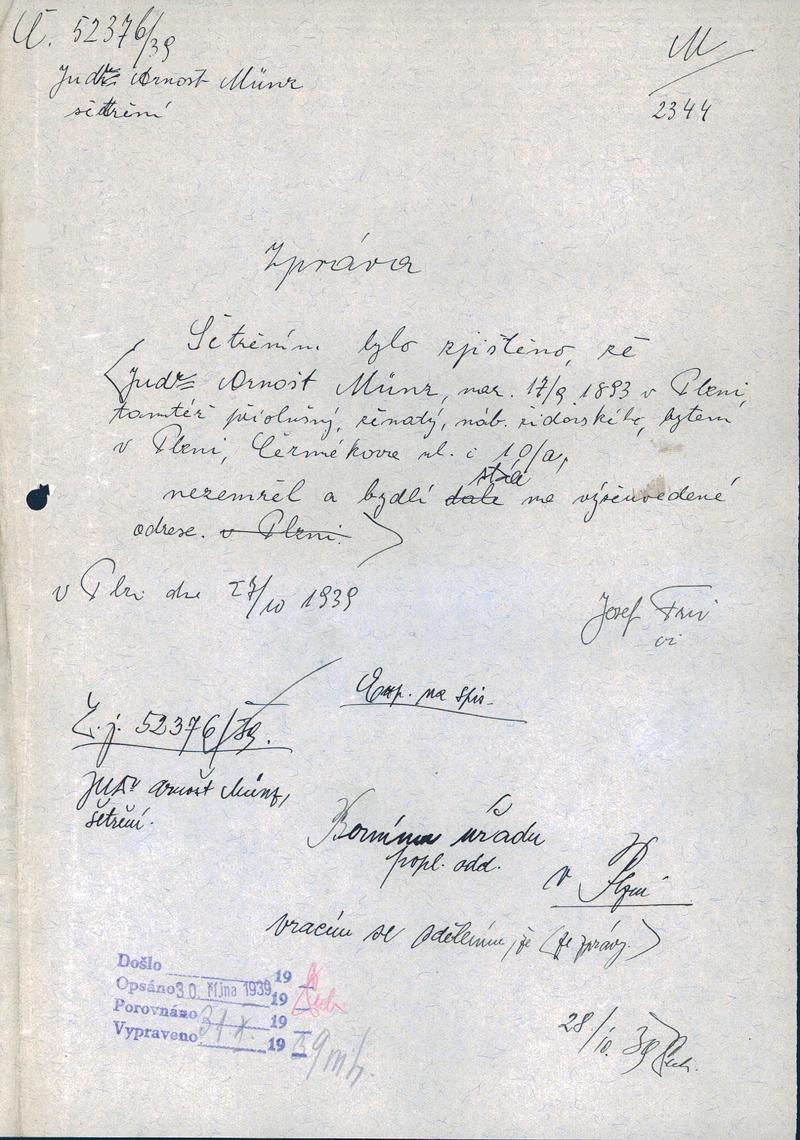 Č. 52376/39
Judr. Arnošt Münz
šetření
M
2344
Zpráva
Šetřením bylo zjištěno, že
Judr. Arnošt Münz, nar. 17/9 1893 v Plzni,
tamtéž příslušný, ženatý, náb. židovského, bytem
v Plzni, Čermákova ul. č 10/a,
nezemřel a bydlí dále stále na výšeuvedené
adrese. v Plzni.
v Plzni dne 27/10 1939
Josef
Exp. na spis.
Č.j. 52376/39.
JUDr Arnošt Münz,
šetření.
Bernímu úřadu
popl. odd.
v Plzni
vracím se sdělením, že (ze zprávy.)
Došlo 19
Opsáno 30. října 1939 19
Porovnáno 31 X. 19
Vypraveno 19 39
28./10. 39